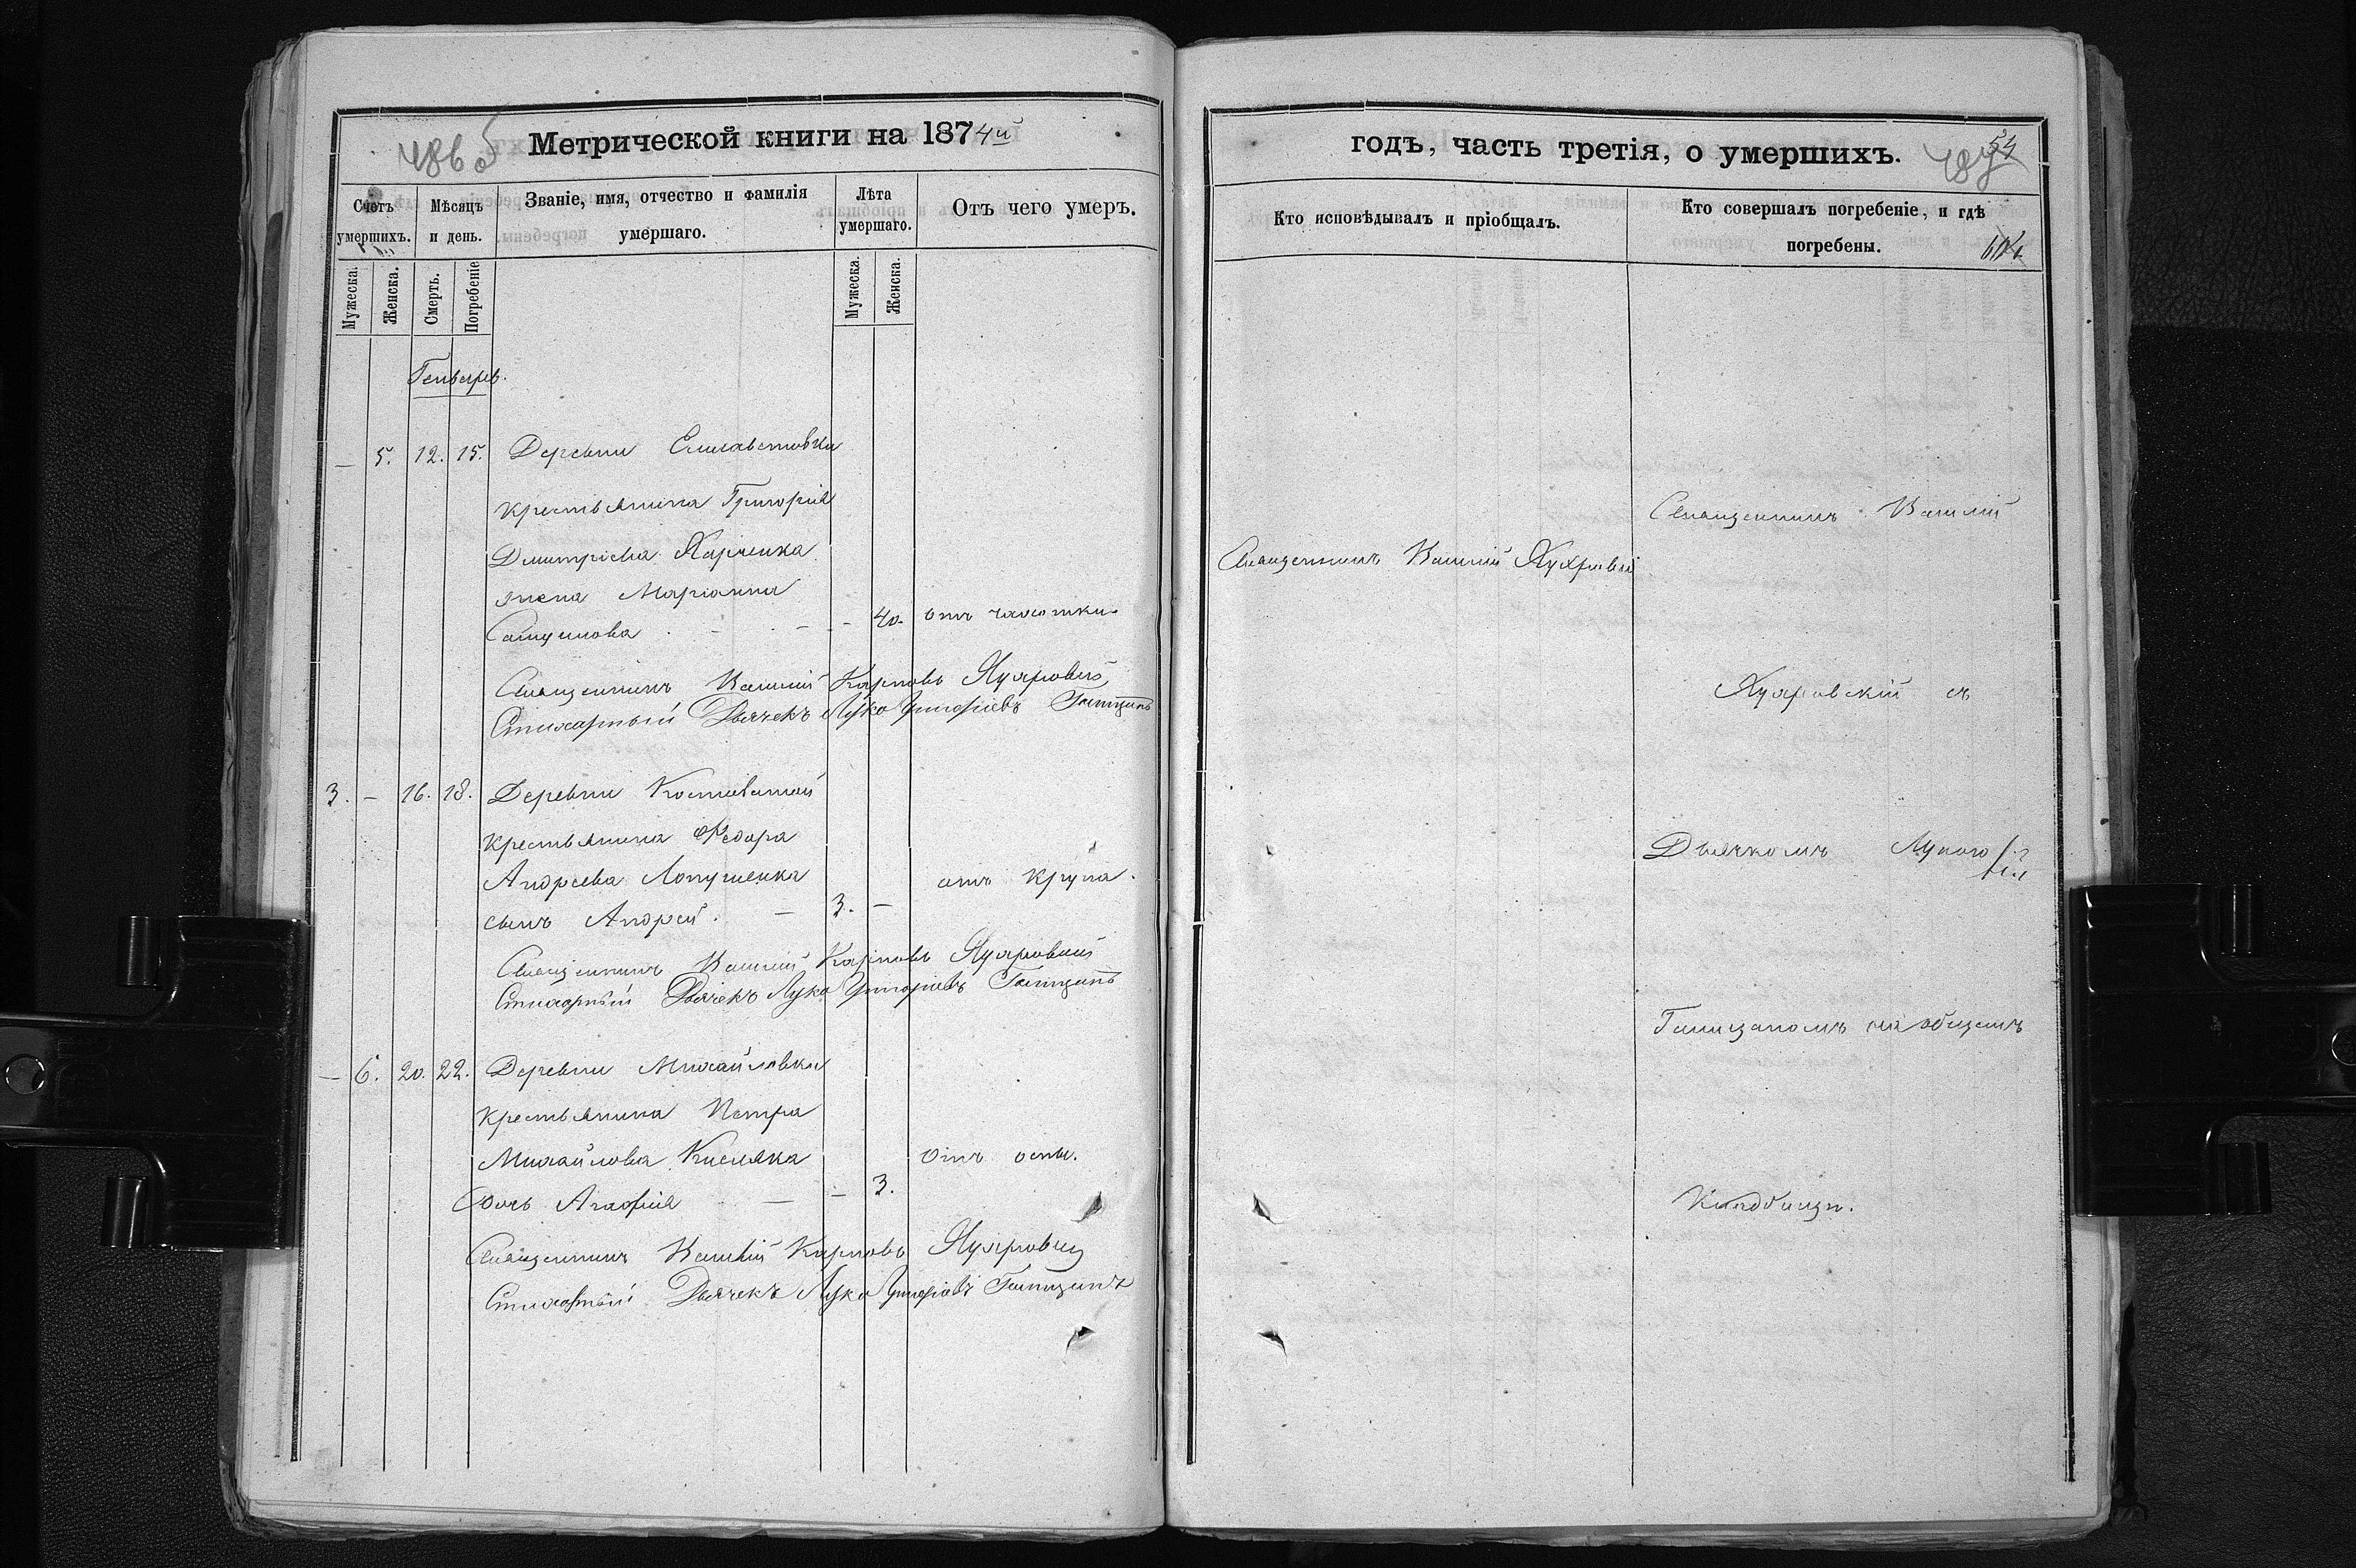 486 об
Метрической книги на 1874й
Счетъ умершихъ.
Мѣсяцъ и день.
Званіе, имя, отчество и фамилія умершаго.
Лѣта умершаго.
Отъ чего умеръ.
Мужеска.
Женска.
Смерть.
Погребеніе
Мужеска.
Женска.
Генварь.
— 5. 12. 15. Деревни Елисаветовки
крестьянина Григорія
Дмитріева Харченка
жена Маріанна
— 40. отъ чахотки.
Священникъ Василій Карповъ
Стихарный Дьячекъ Лука Григоріевъ
3. — 16. 18. Деревни Костоватой
крестьянина Федора
Андреева Лопушенка
отъ крупа.
сынъ Андрей. — 3. —
Священникъ Василій Карповъ
Стихарный Дьячекъ Лука Григоріевъ
— 6. 20. 22. Деревни Михайловки
крестьянина Петра
Михайлова Кисляка
отъ оспы.
дочь Агафія — — 3.
Священникъ Василій Карповъ
Стихарный Дьячекъ Лука Григоріевъ
годъ, часть третія, о умершихъ.
54
487
Кто исповѣдывалъ и пріобщалъ.
Кто совершалъ погребеніе, и гдѣ погребены.
Священникъ Василій
Священникъ Василій
съ
Дьячкомъ Лукою
на общемъ
Кладбищѣ.